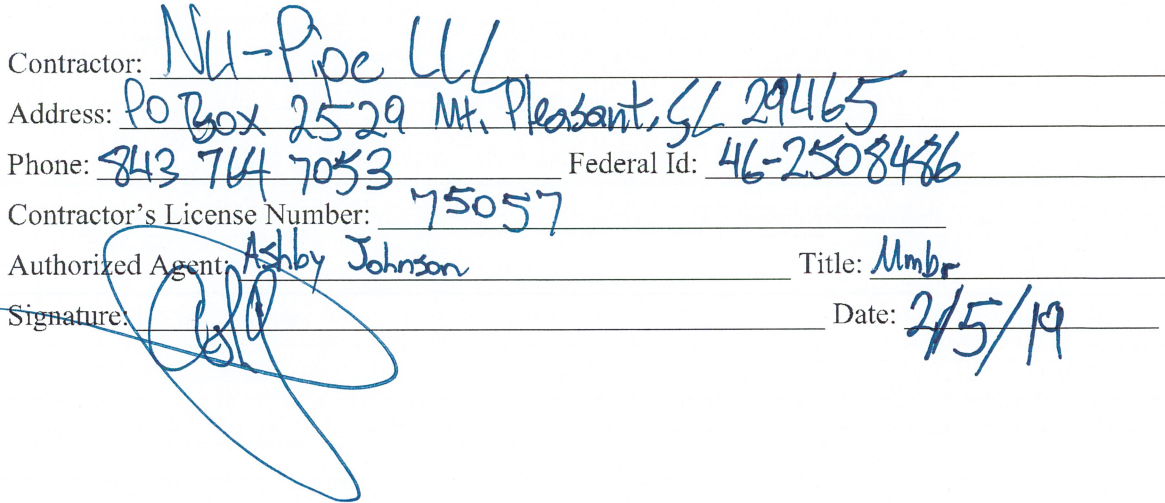 Contractor: Nu-Pipe LLC
Address: PO Box 2529 Mt. Pleasant, SC 29465
Phone: 843 764 7053 Federal Id: 46-2508486
Contractor's License Number: 75057
Authorized Agent: Ashby Johnson Title: Mmbr
Signature: Date: 2/5/19